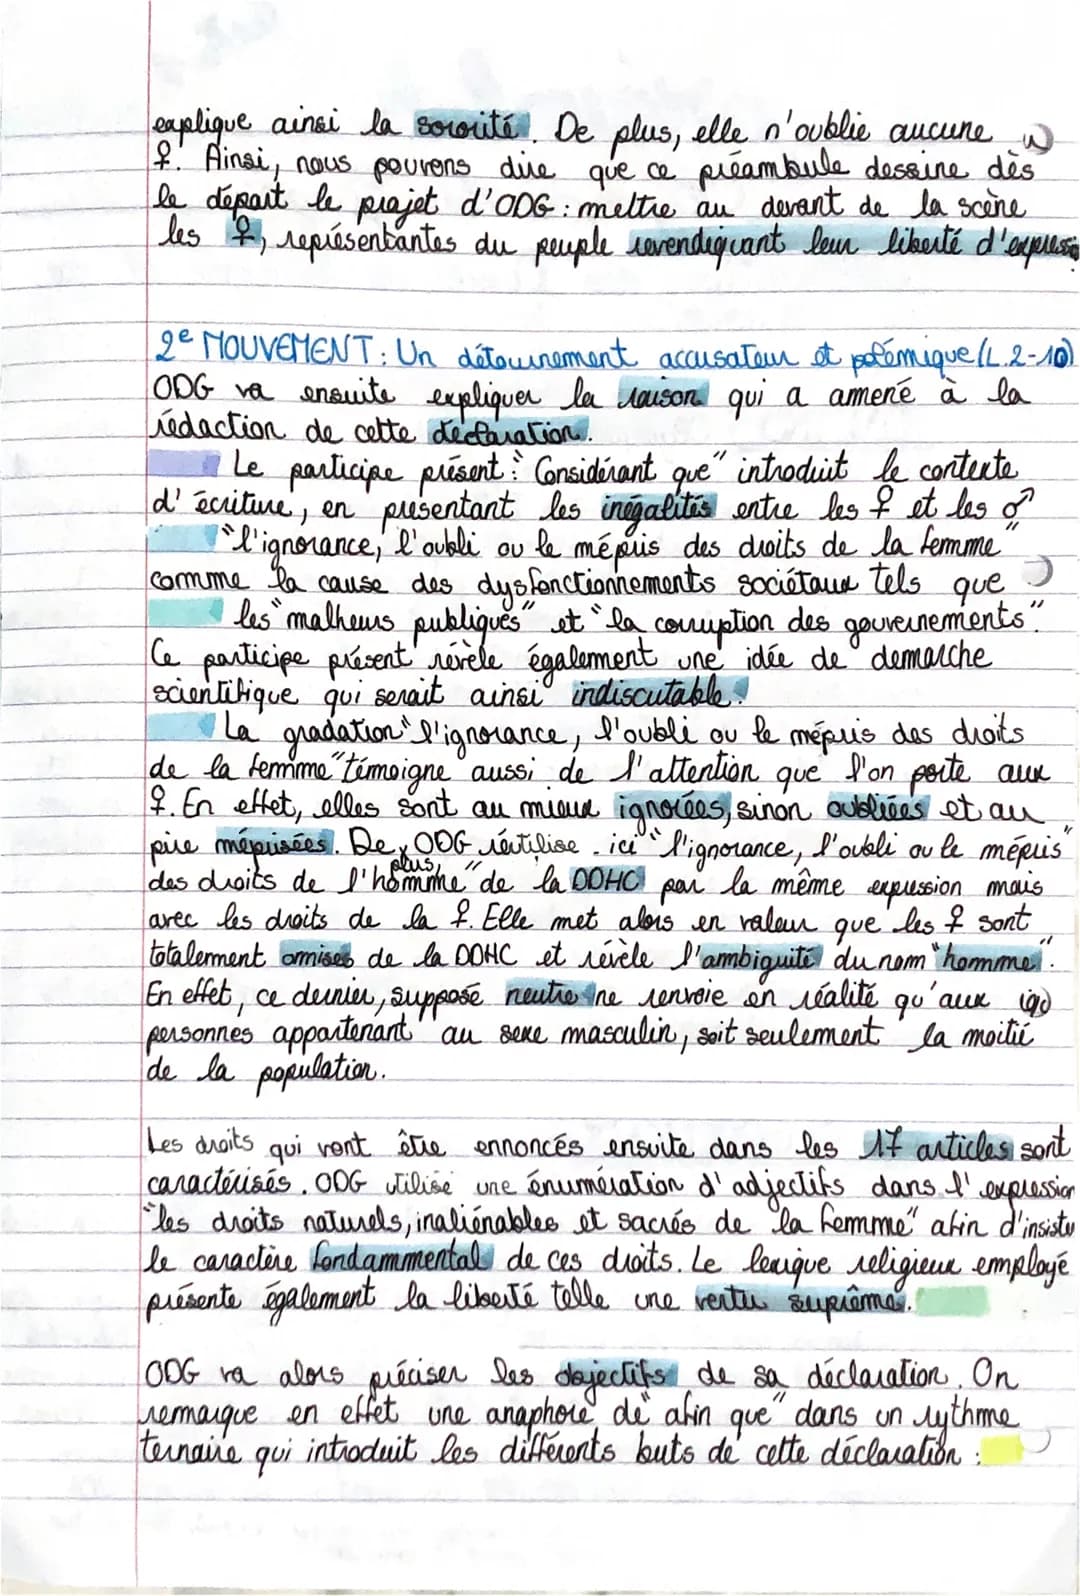 explique ainsi la sororité. De plus, elle n'oublie aucune
♀. Ainsi, nous pouvons dire que ce préambule dessine dès
le départ le projet d'ODG : mettre au devant de la scène
les ♀, représentantes du peuple revendiquant leur liberté d'expressio
2e MOUVEMENT : Un détournement accusateur et polémique (L.2-10)
ODG va ensuite expliquer la raison qui a amené à la
rédaction de cette déclaration.
Le participe présent : "Considérant que" introduit le contexte
d'écriture, en présentant les inégalités entre les ♀ et les ♂
"l'ignorance, l'oubli ou le mépris des droits de la femme"
comme la cause des dysfonctionnements sociétaux tels que
les "malheurs publiques" et "la corruption des gouvernements".
Ce participe présent révèle également une idée de démarche
scientifique qui serait ainsi indiscutable.
La gradation "l'ignorance, l'oubli ou le mépris des droits
de la femme" témoigne aussi de l'attention que l'on porte aux
♀. En effet, elles sont au mieux ignorées, sinon oubliées et au
pire méprisées. De plus, ODG réutilise ici "l'ignorance, l'oubli ou le mépris
des droits de l'homme" de la DDHC par la même expression mais
avec les droits de la ♀. Elle met alors en valeur que les ♀ sont
totalement omises de la DDHC et révèle l'ambiguité du nom "homme".
En effet, ce dernier, supposé neutre ne renvoie en réalité qu'aux
personnes appartenant au sexe masculin, soit seulement la moitié
de la population.
Les droits qui vont être ennoncés ensuite dans les 17 articles sont
caractérisés. ODG utilise une énumération d'adjectifs dans l'expression
"les droits naturels, inaliénables et sacrés de la femme" afin d'insiste
le caractère fondammental de ces droits. Le lexique religieux employé
présente également la liberté telle une vertu suprême.
ODG va alors préciser les objectifs de sa déclaration. On
remarque en effet une anaphore de "afin que" dans un rythme
ternaire qui introduit les différents buts de cette déclaration :